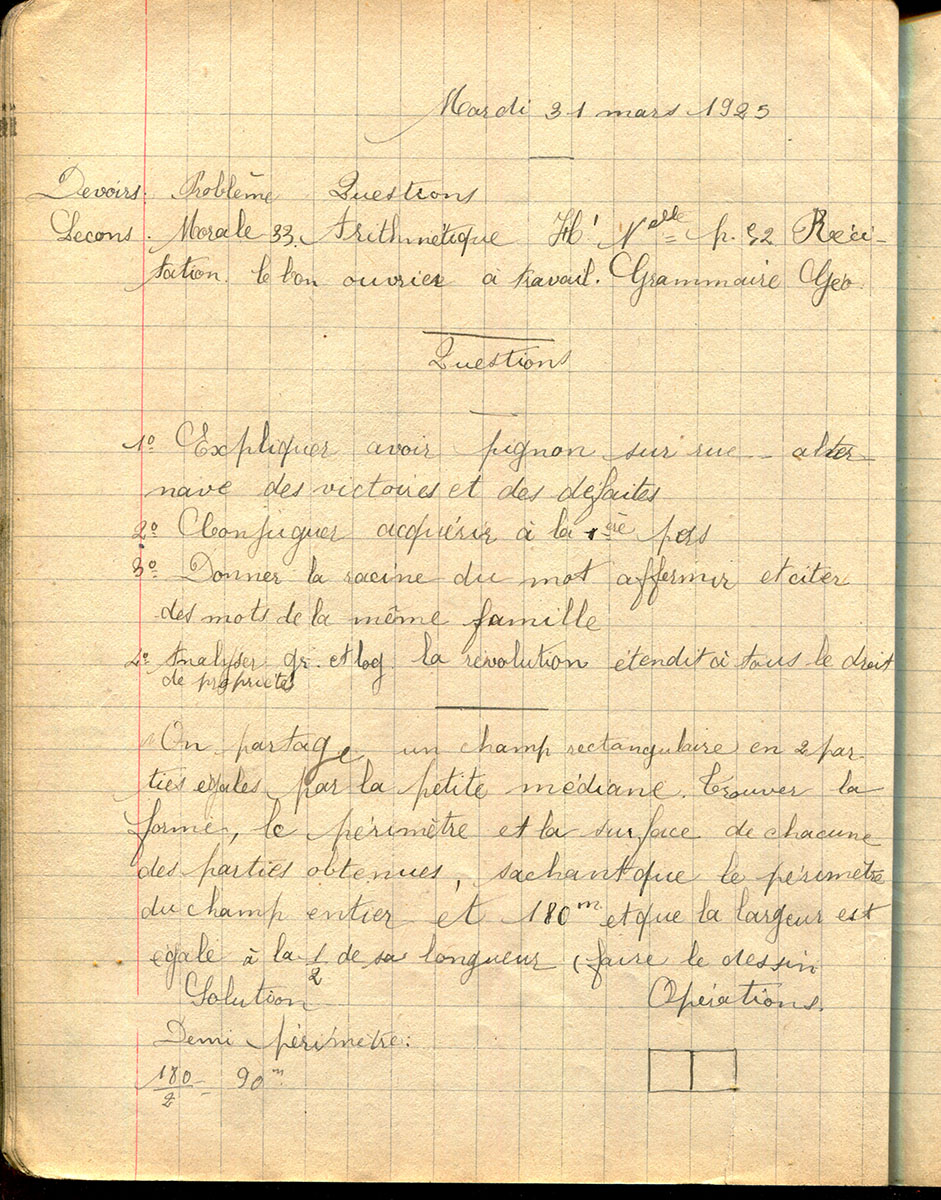 Mardi 31 mars 1925
Devoirs. Problème Questions
Lecons. Morale 33. Arithmétique Nelle p. 52 Réci-
tation. le bon ouvrier à travail. Grammaire Géo.
Questions
1º Expliquer avoir pignon sur rue - alter-
nave des victoires et des défaites
2º Conjuguer acquérir à la 1ère pers
3º Donner la racine du mot affermir et citer
des mots de la même famille
4º Analyser gr. et log. la révolution étendit à tous le droit
de propriété
On partage un champ rectangulaire en 2 par-
ties égales par la petite médiane. Trouver la
forme, le périmètre et la surface de chacune
des parties obtenues, sachant que le périmètre
du champ entier et 180 m et que la largeur est
égale à la 1/2 de sa longueur (faire le dessin
Solution Opérations.
Demi périmètre:
180/2 = 90 m